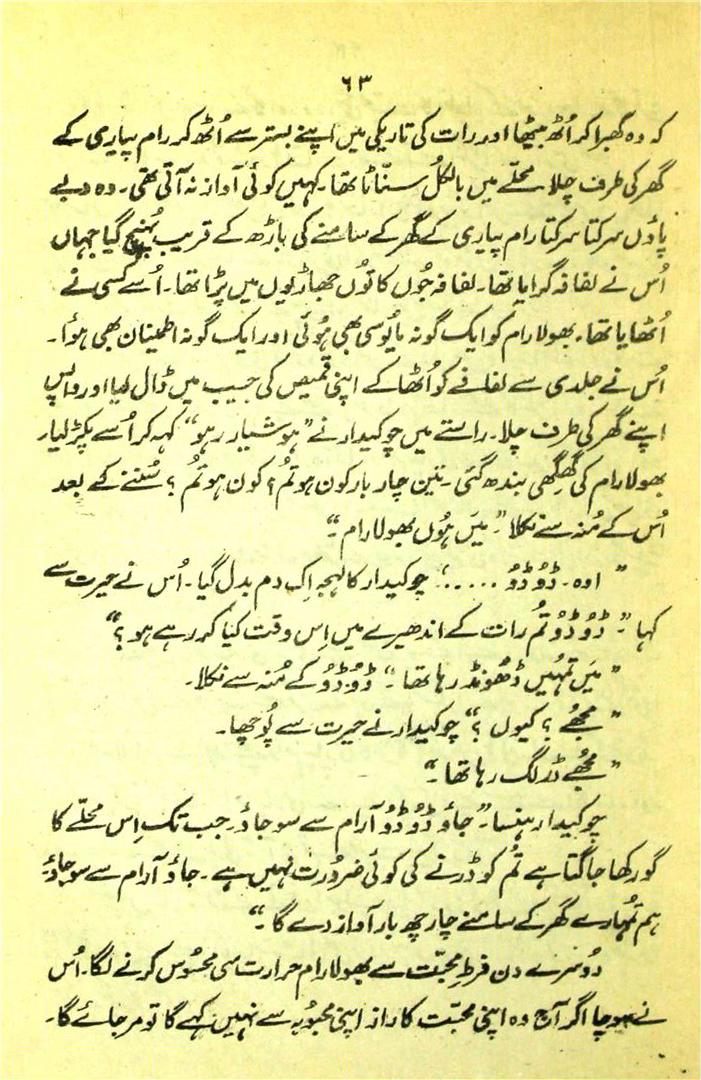 ۶۳
کہ وہ گھبرا کر اُٹھ بیٹھا اور رات کی تاریکی میں اپنے بستر سے اُٹھ کر رام پیاری کے
گھر کی طرف چلا۔ محلّے میں بالکُل سنّاٹا تھا۔ کہیں کوئی آواز نہ آتی تھی۔ وہ دبے
پاؤں سرکتا سرکتا رام پیاری کے گھر کے سامنے کی باڑھ کے قریب پُہنچ گیا جہاں
اُس نے لفافہ گرایا تھا۔ لفافہ جُوں کا تُوں جھاڑیوں میں پڑا تھا۔ اُسے کسی نے
اُٹھایا تھا۔ بھولا رام کو ایک گونہ مایُوسی بھی ہُوئی اور ایک گونہ اطمینان بھی ہوُا۔
اُس نے جلدی سے لفافے کو اُٹھا کے اپنی قمیص کی جیب میں ڈال لیا اور واپس
اپنے گھر کی طرف چلا۔ راستے میں چوکیدار نے ”ہوشیار رہو“ کہہ کر اُسے پکڑ لیا۔
بھولا رام کی گھِگھی بندھ گئی۔ تین چار بار کون ہو تمُ؟ کون ہو تمُ؟ سُننے کے بعد
اُس کے مُنہ سے نکلا ”۔ میَں ہُوں بھولا رام۔“
”اوہ۔ ڈُوڈُو .....“ چوکیدار کا لہجہ اِک دم بدل گیا۔ اُس نے حیرت سے
کہا ”۔ ڈُوڈُو تمُ رات کے اندھیرے میں اِس وقت کیا کر رہے ہو؟“
”میَں تمہُیں ڈھُونڈ رہا تھا۔“ ڈُوڈُو کے مُنہ سے نکلا۔
”مجھُے؟ کیوں؟“ چوکیدار نے حیرت سے پُوچھا۔
”مجھُے ڈر لگ رہا تھا۔“
چوکیدار ہنسا۔ ”جاؤ ڈُوڈُو آرام سے سو جاؤ۔ جب تک اِس محلّے کا
گورکھا جاگتا ہے تمُ کو ڈرنے کی کوئی ضرُورت نہیں ہے۔ جاؤ آرام سے سو جاؤ۔
ہم تمُہارے گھر کے سامنے چار چھ بار آواز دے گا۔“
دُوسرے دن فرطِ محبّت سے بھولا رام حرارت سی محسُوس کرنے لگا۔ اُس
نے سوچا اگر آج وہ اپنی محبّت کا راز اپنی محبُوبہ سے نہیں کہے گا تو مر جائے گا۔